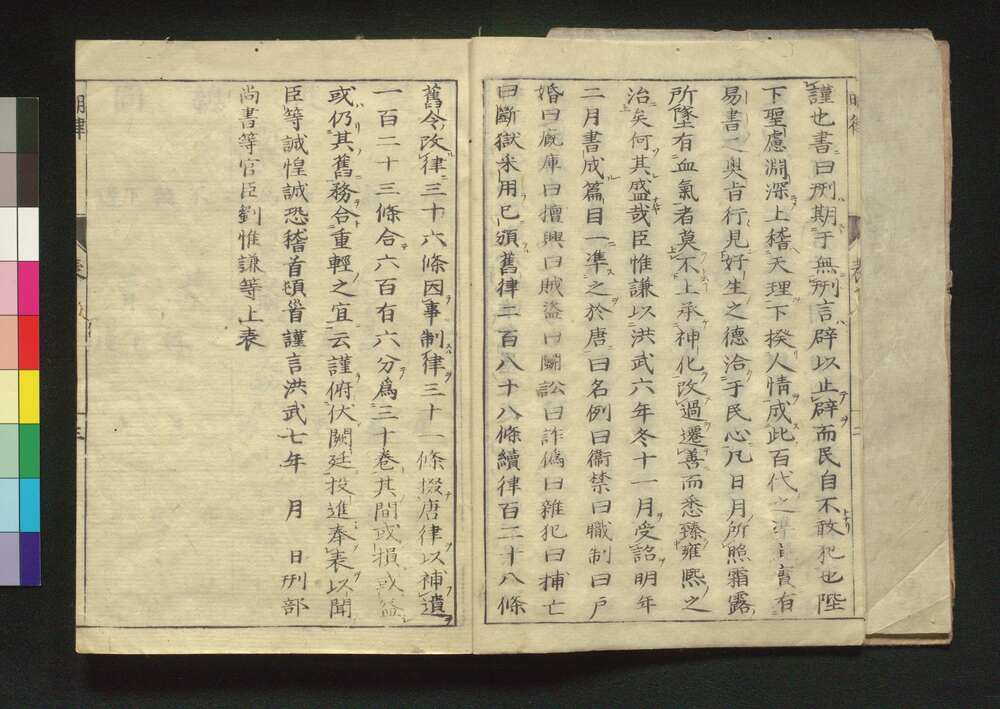 謹也書曰刑期于無刑言辟以止辟而民自不敢犯也陛
下聖慮淵深上稽天理下揆人情成此百代之準實有
易書之奥旨行見好生之德洽于民心凡日月所照霜露
所墜有血氣者莫不上承神化改過遷善而悉臻雍熙之
治矣何其盛哉臣惟謙以洪武六年冬十一月受詔明年
二月書成篇目一準之於唐曰名例曰衞禁曰職制曰戸
婚曰廐庫曰擅興曰賊盜曰鬭訟曰詐僞曰雜犯曰捕亡
曰斷獄采用已頒舊律二百八十八條續律百二十八條
舊令改律三十六條因事制律三十一條掇唐律以補遺
一百二十三條合六百有六分爲三十卷其間或損或益
或仍其舊務合重輕之宜云謹俯伏闕廷投進奉表以聞
臣等誠惶誠恐稽首頓首謹言洪武七年　月　日刑部
尚書等官臣劉惟謙等上表